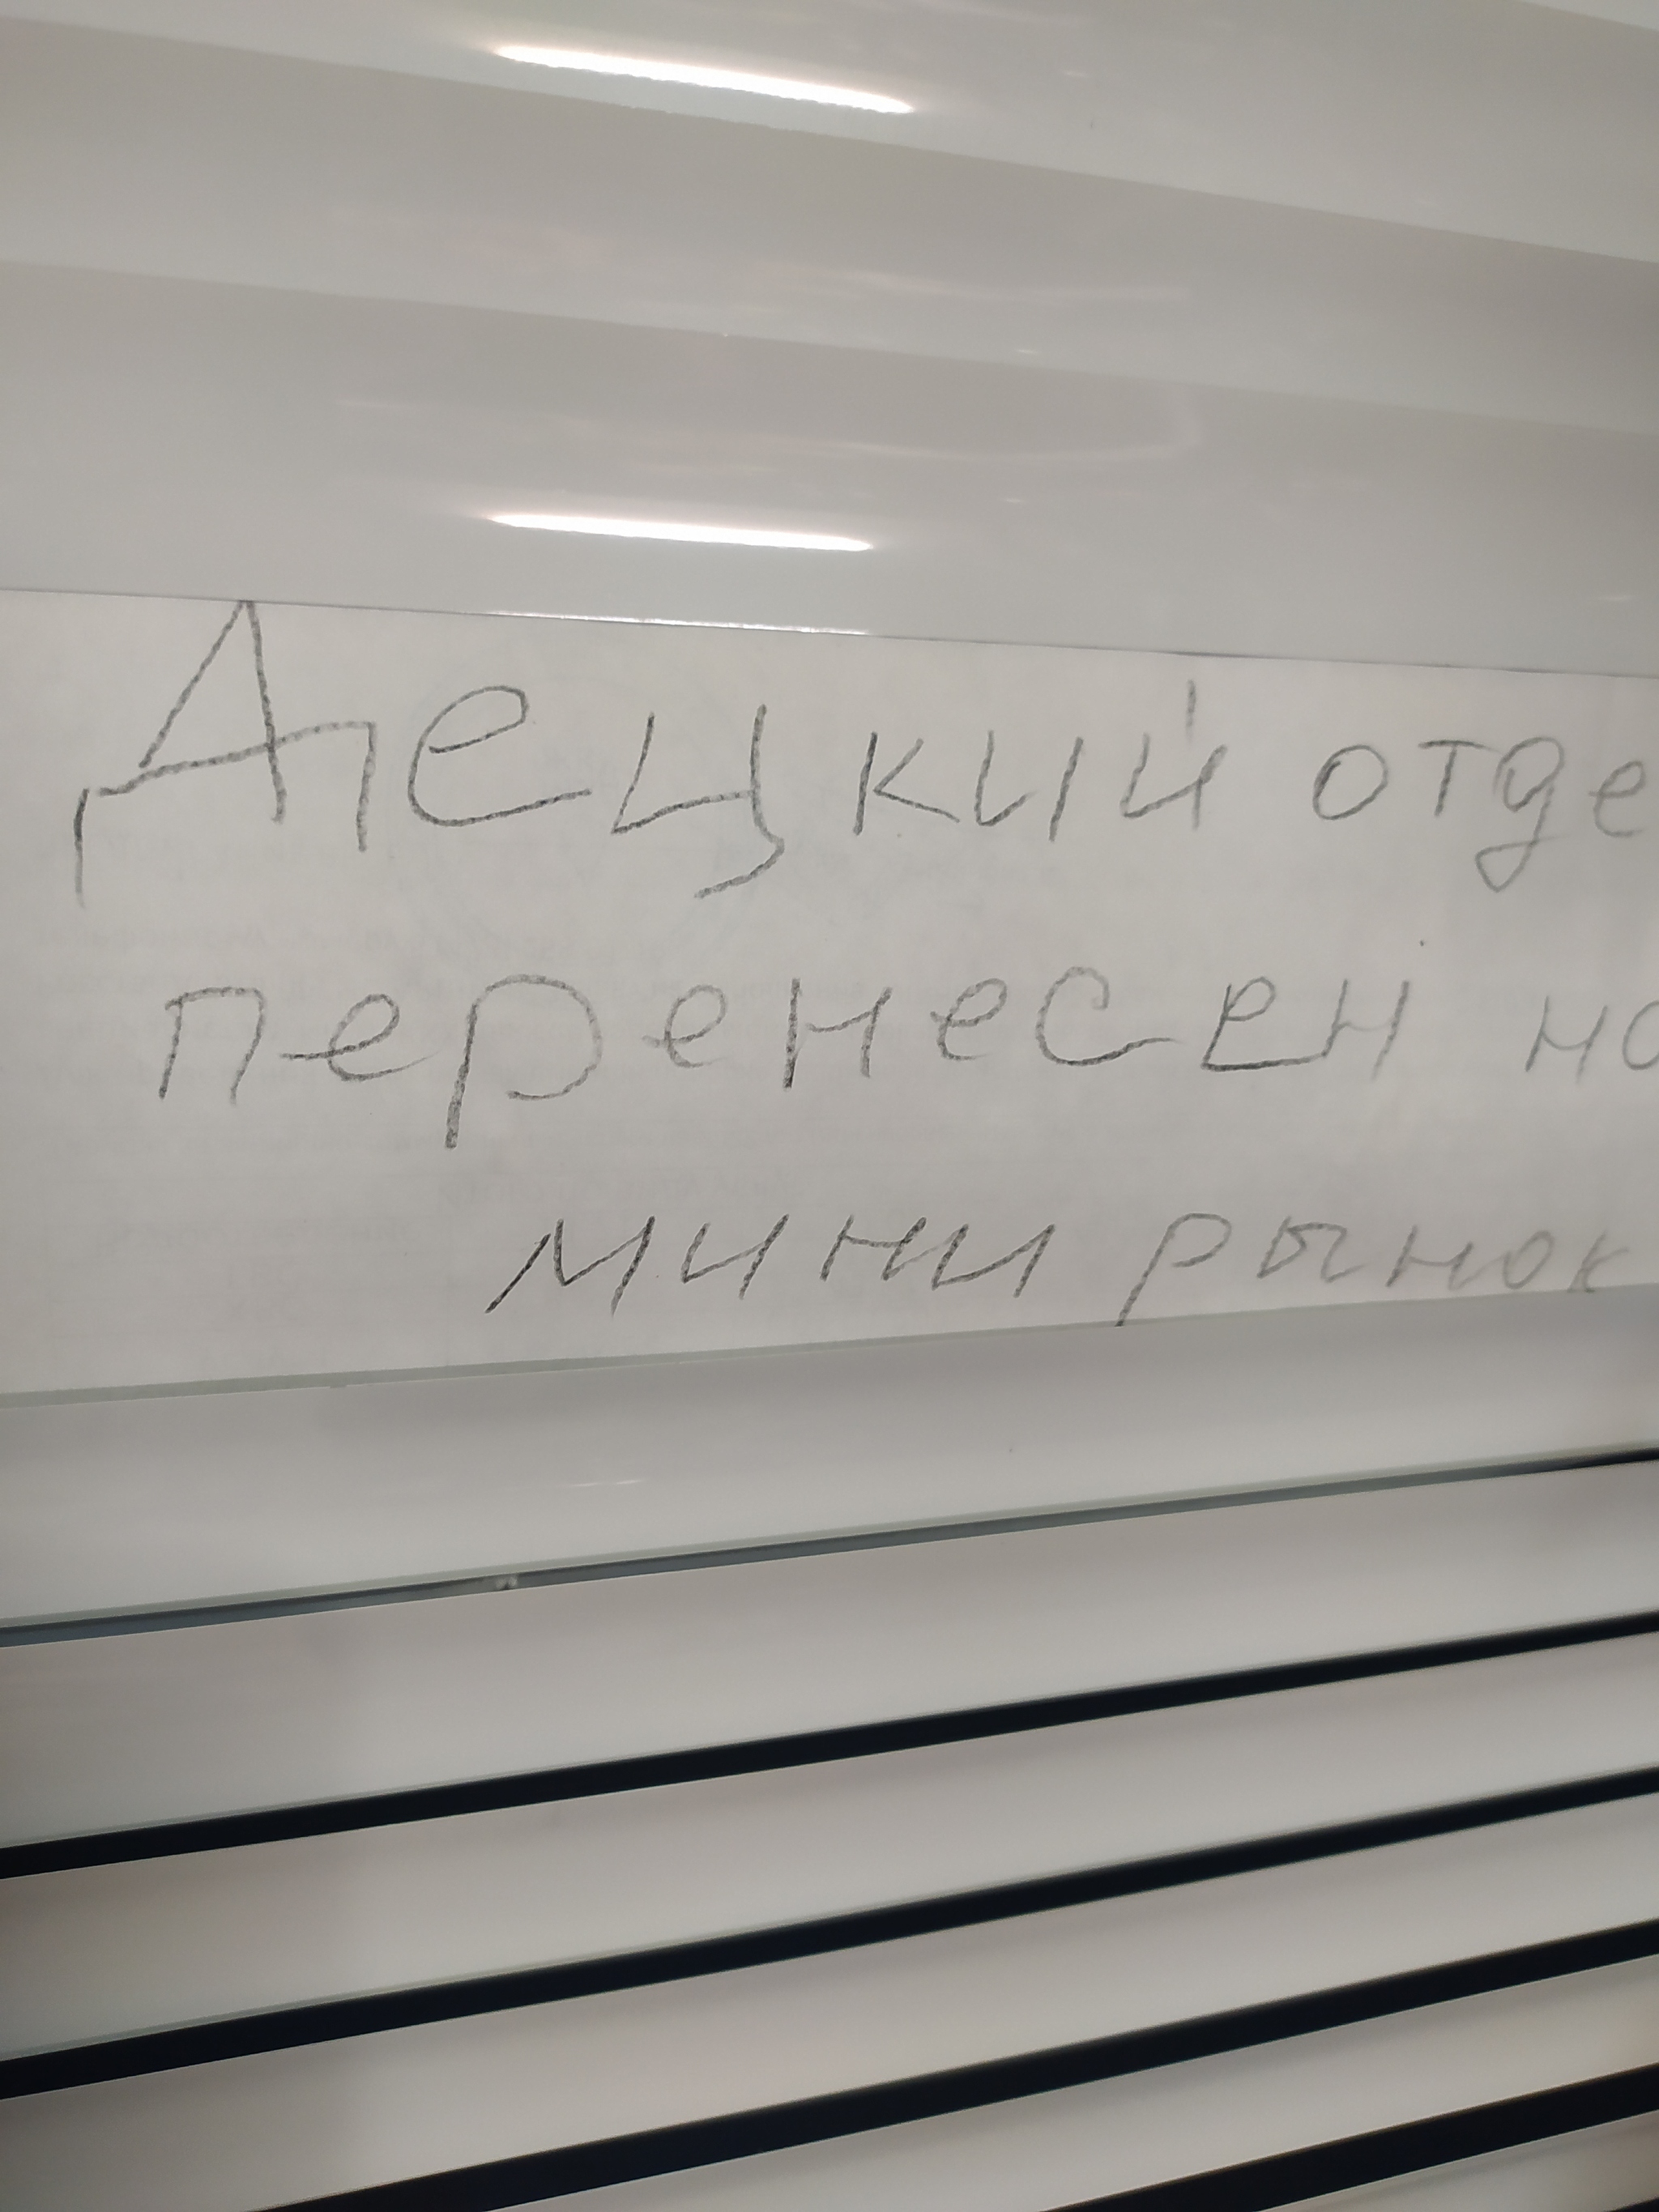 Децкий отде
перенесен на
мини рынок